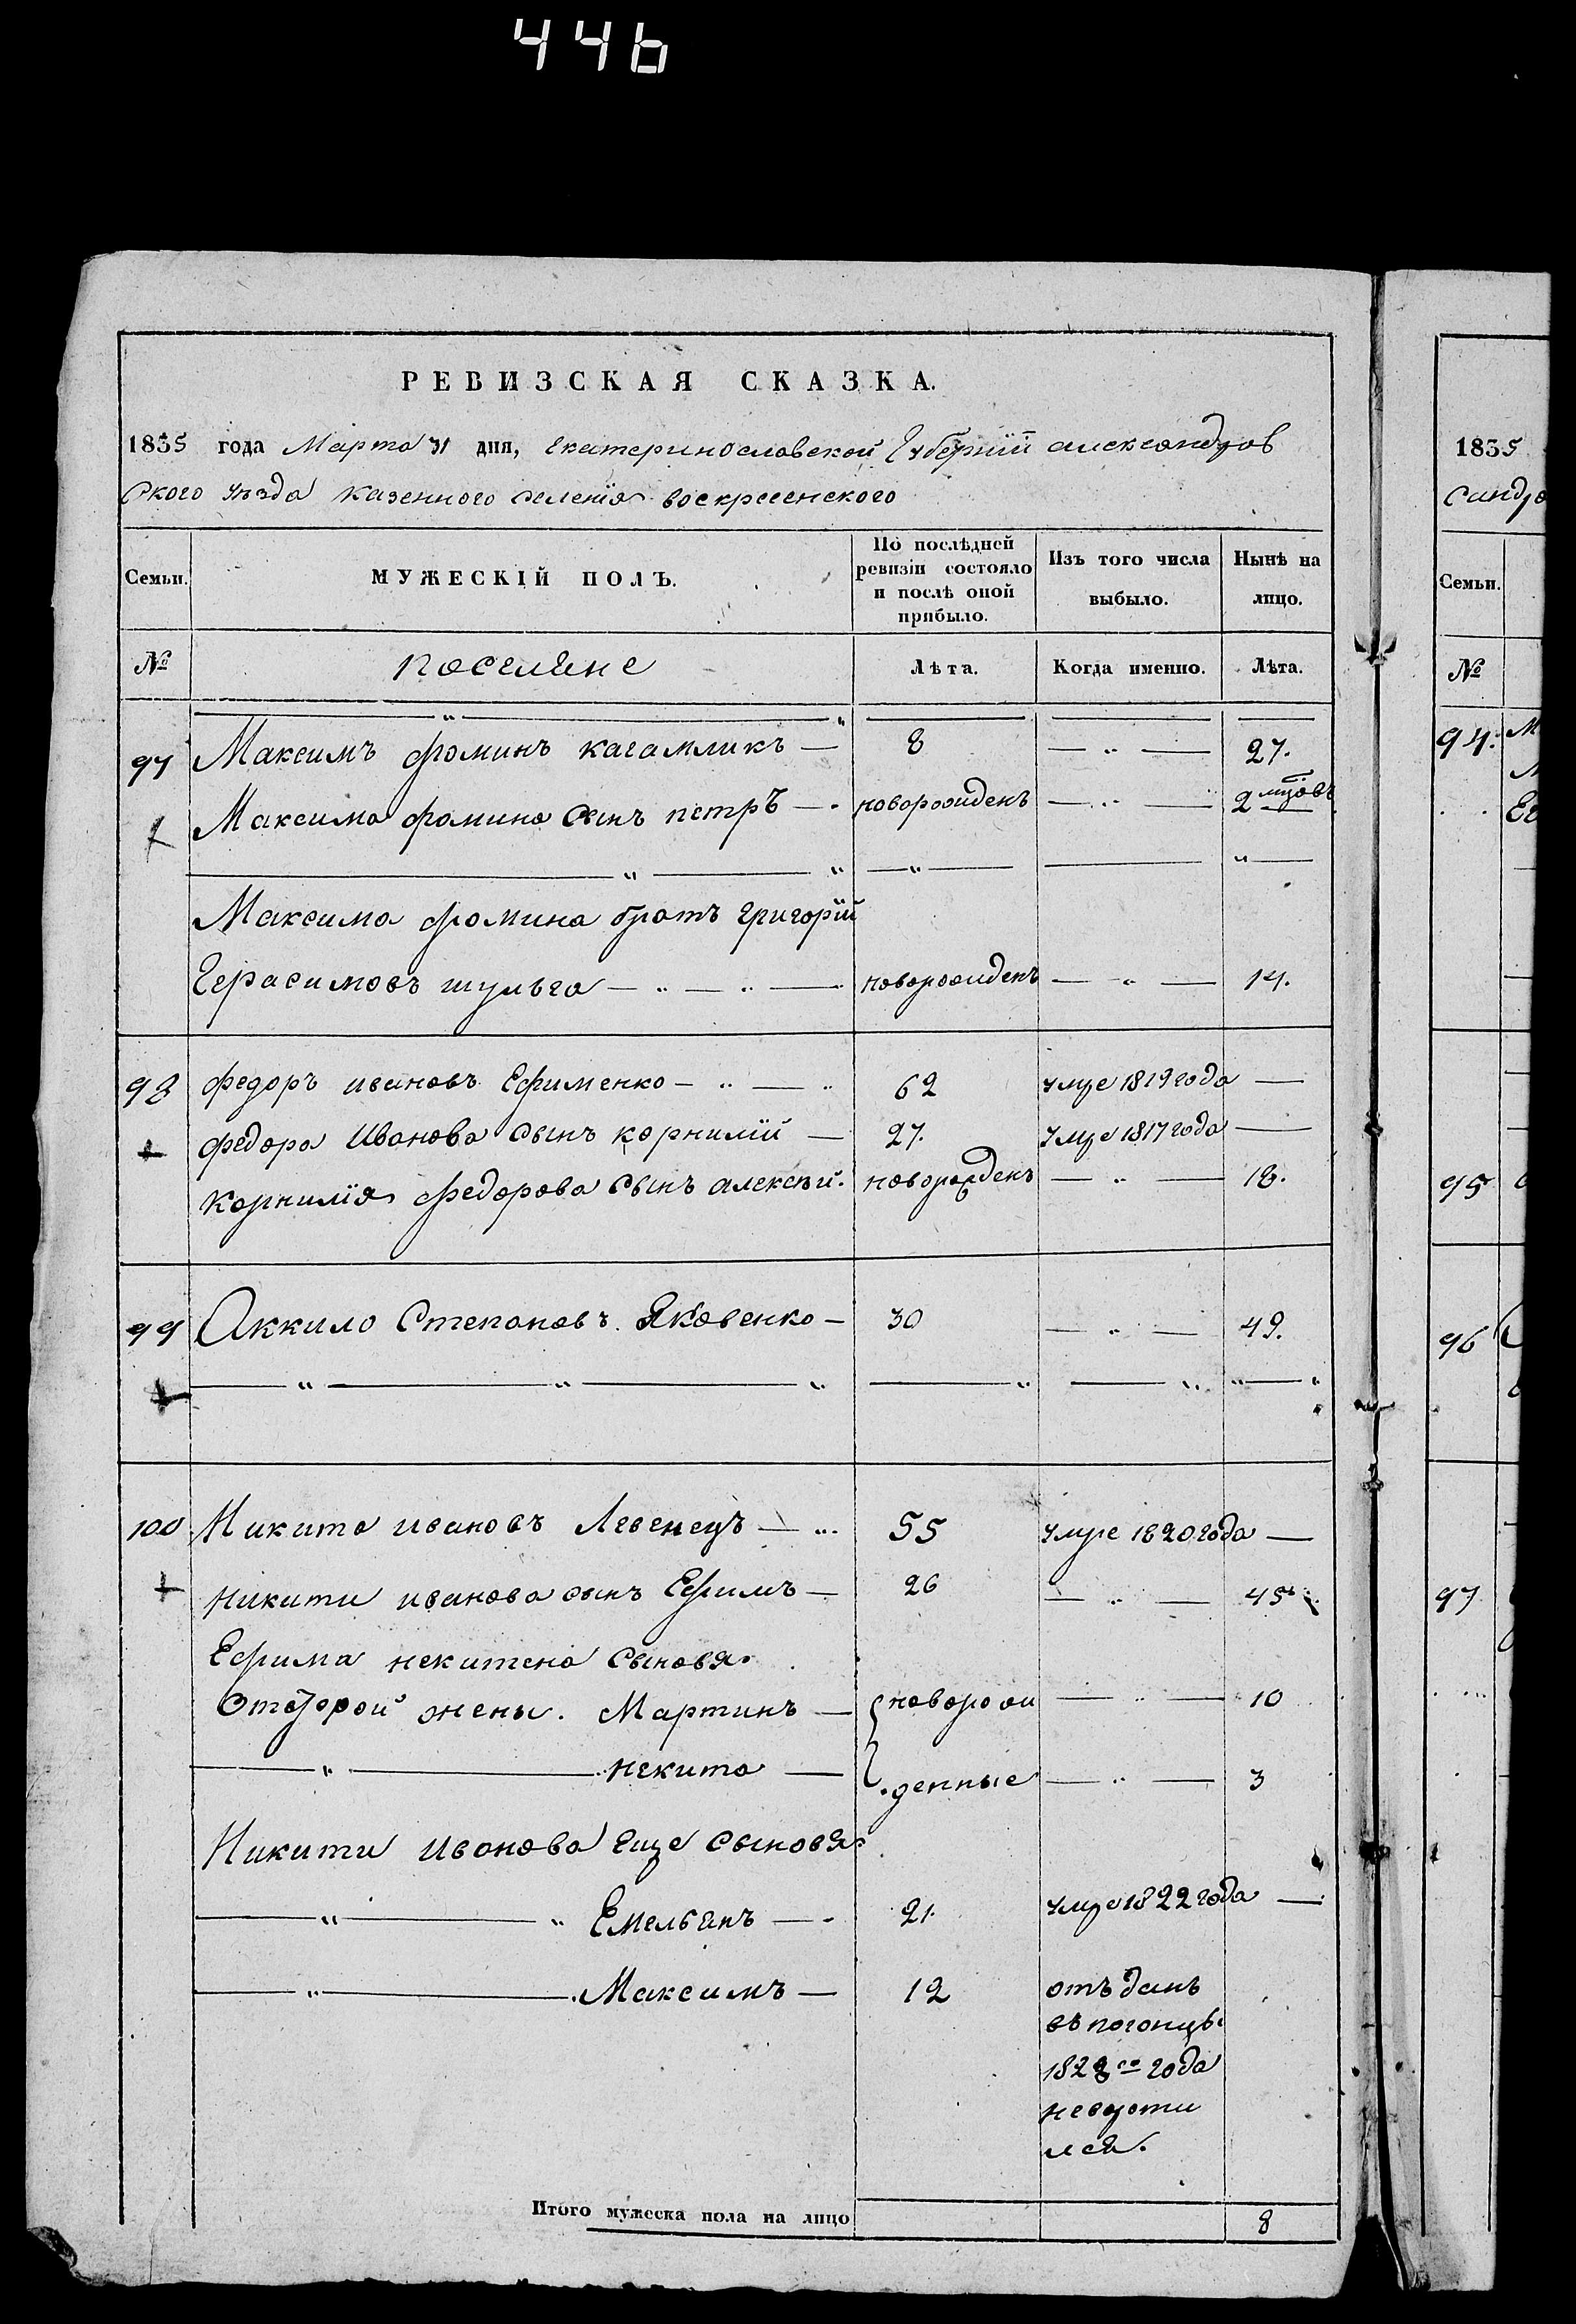 446
РЕВИЗСКАЯ СКАЗКА.
1835 года Марта 31 дня, Екатеринославской Губернїй александров
Ского уѣзда казенного селенїя воскресенского
Семьи. МУЖЕСКІЙ ПОЛЪ. По послѣдней ревизіи состояло и послѣ оной прибыло. Изъ того числа выбыло. Нынѣ на лицо.
№ поселяне Лѣта. Когда именно. Лѣта.
97 Максимъ фоминъ кагамликъ — 8 — „ — 27.
Максима фомина сынъ петръ — новорожденъ — „ — 2 мцовъ
Максима фомина братъ григорїй
Герасимовъ шульга — новорожденъ — „ — 14.
98 федоръ ивановъ Ефименко — 62 умре 1819 года —
федора Иванова сынъ корнилїй — 27. умре 1817 года —
Корнилїя федорова сынъ алексѣй. новорожденъ — „ — 18.
99 Аккило Степановъ Яковенко — 30 — „ — 49.
100 Никита ивановъ Левенецъ — 55 умре 1820 года —
Никити иванова сынъ Ефимъ — 26 — „ — 45
Ефима некитена сыновя
Отвторой жены. Мартинъ — новорож — „ — 10
— „ — некита — денные — „ — 3
Никити Иванова еще сыновя
— „ — „ Емельянъ — 21. умре 1822 года —
— „ — Максимъ — 12 отъданъ
въ погонцы
1828 го года
невороти
лся.
Итого мужеска пола на лицо 8
1835
Сандро
Семьи.
№
94.
95
96
97